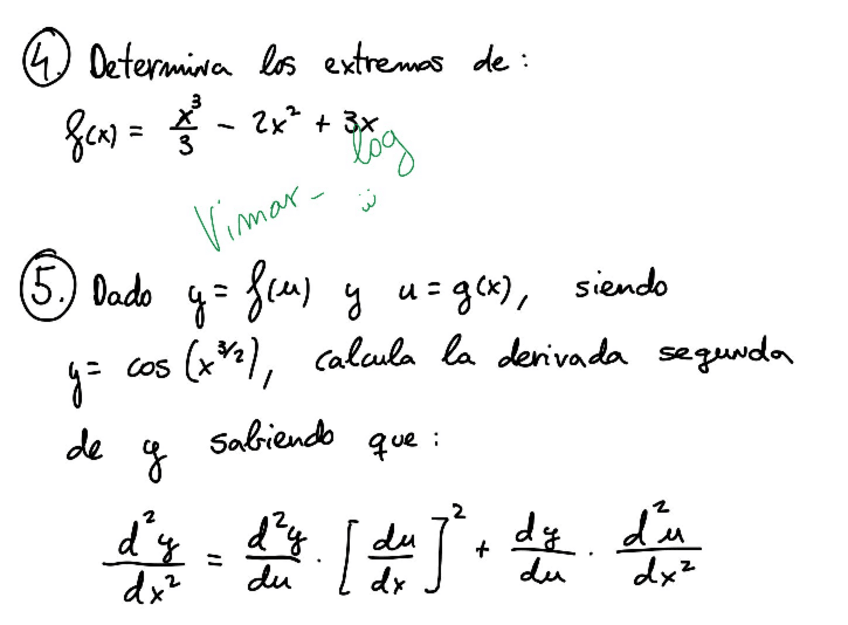 4. Determina los extremos de:
f(x) = x³/3 - 2x² + 3x
Vimar-log
5. Dado y = f(u) y u = g(x), siendo
y = cos (x^3/2), calcula la derivada segunda
de y sabiendo que:
d²y/dx² = d²y/du · [du/dx]² + dy/du · d²u/dx²